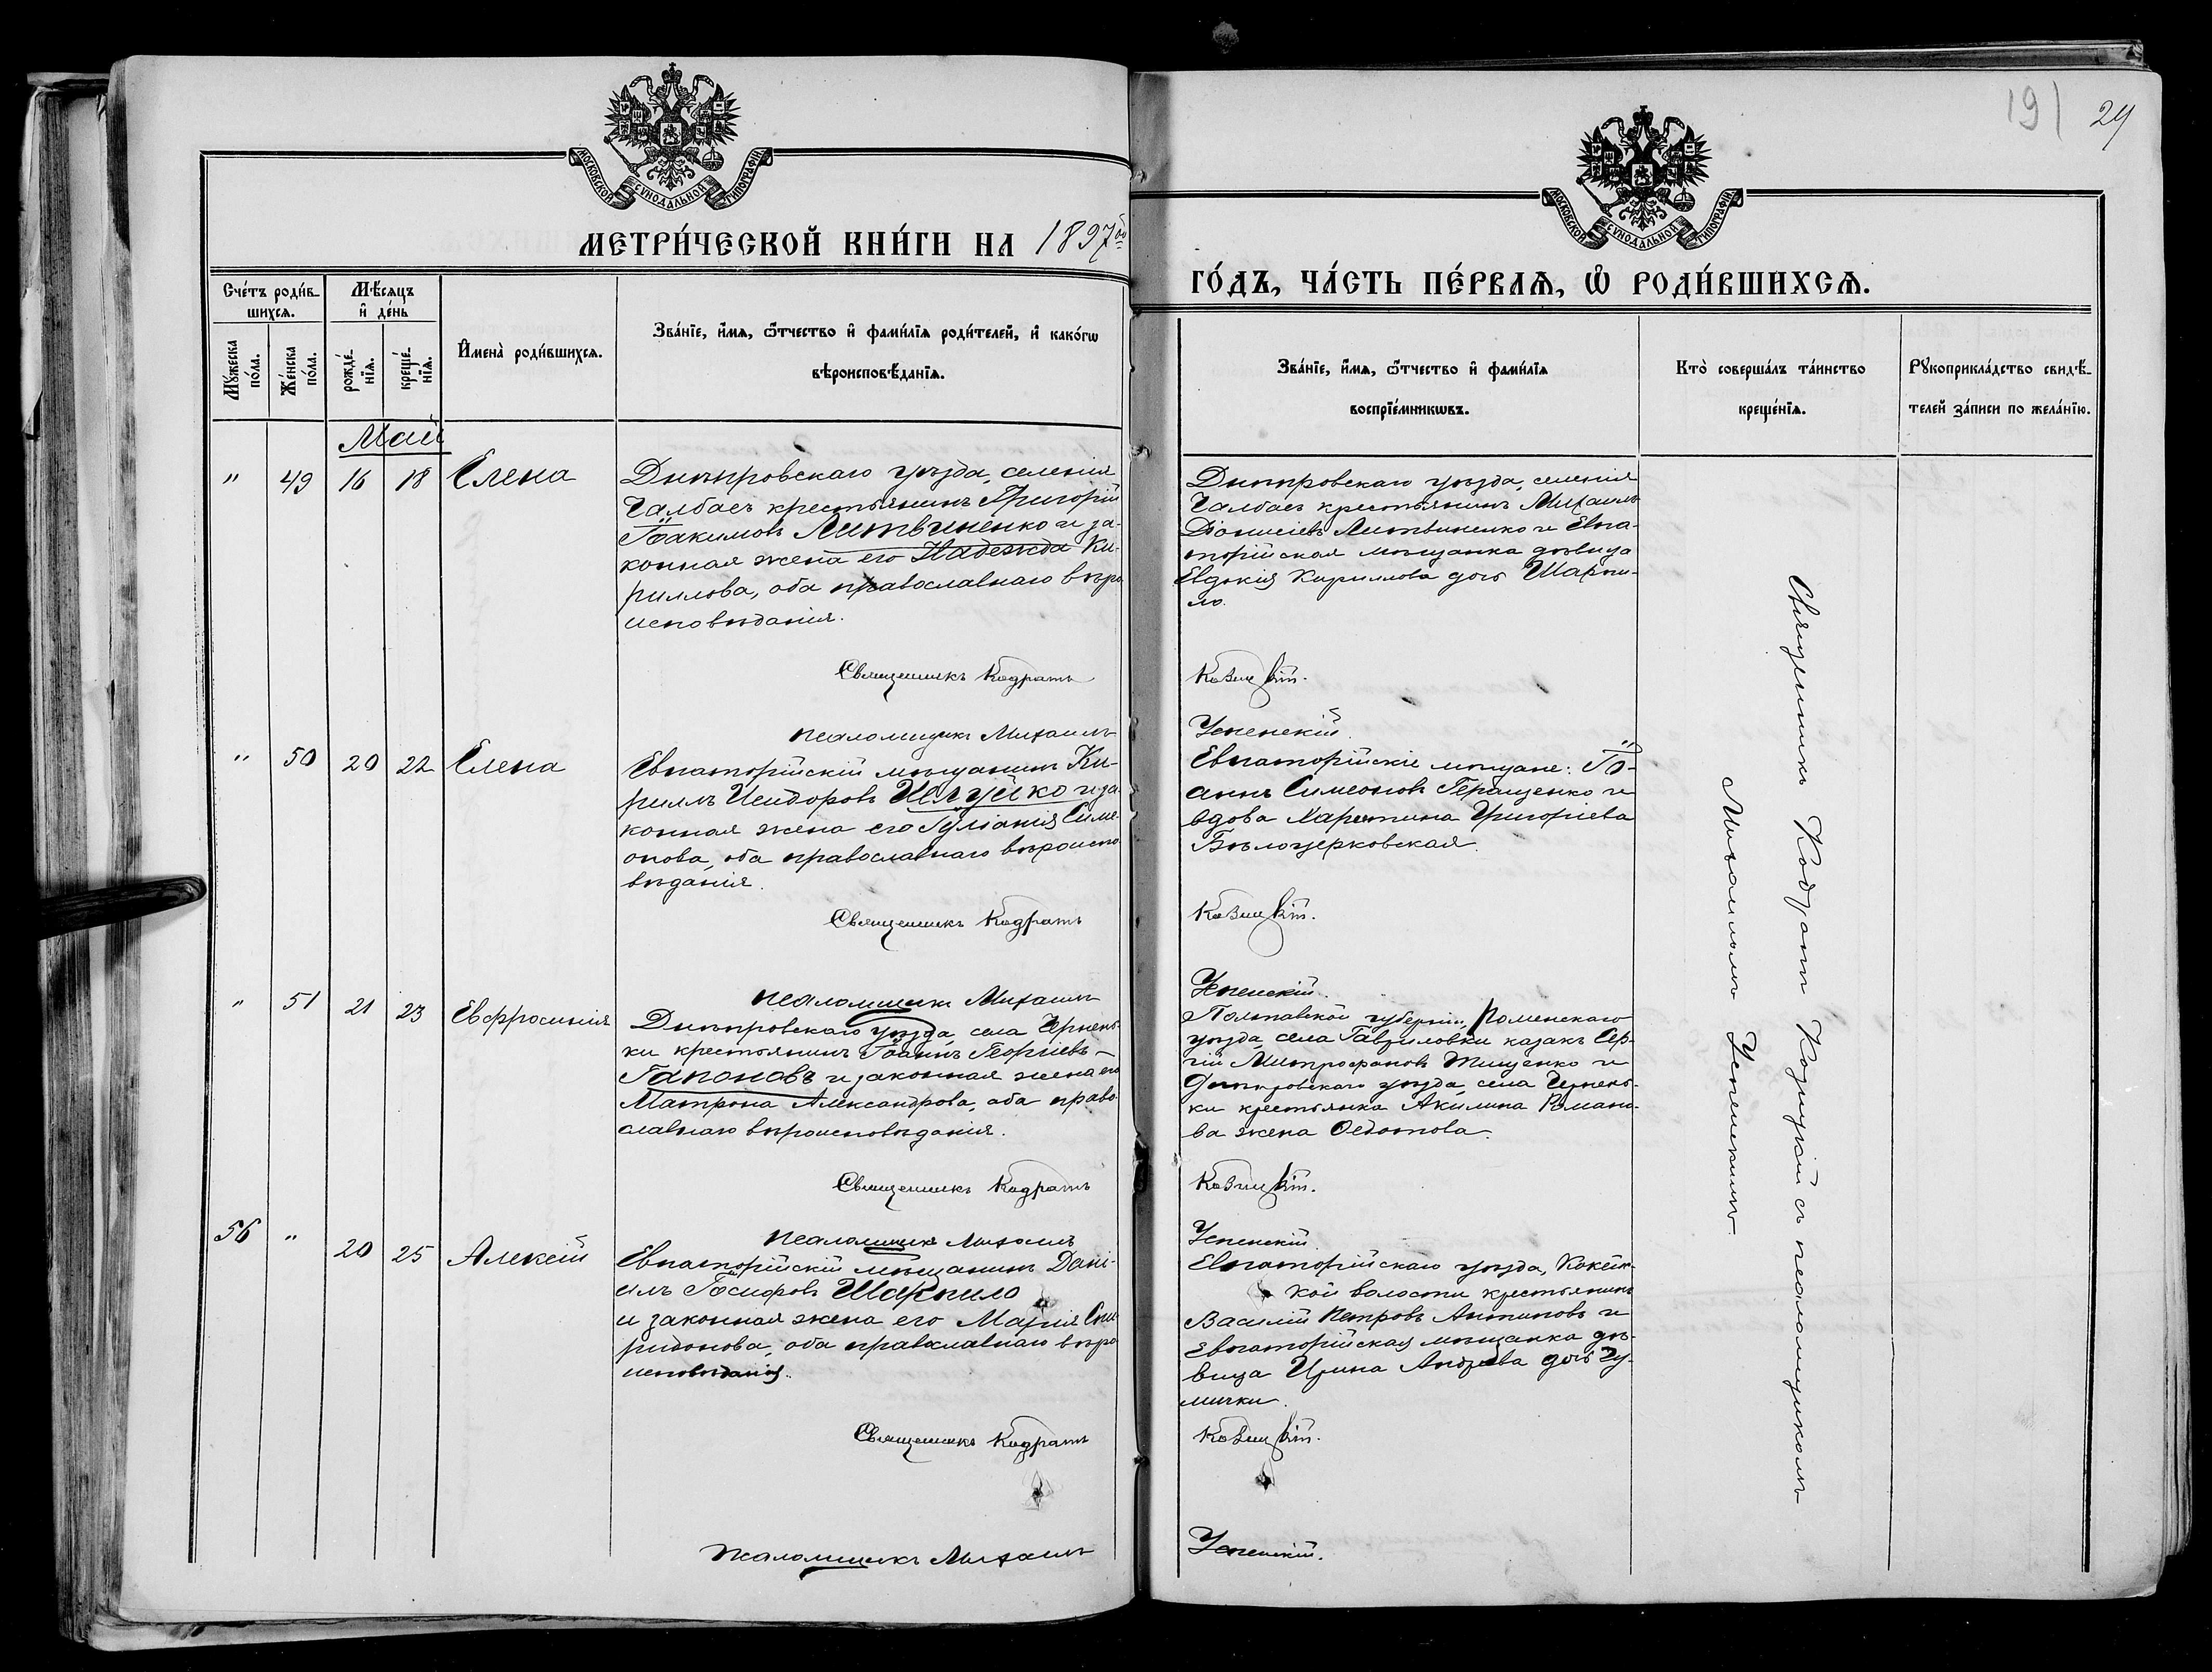 191 29
МОСКОВСКОЙ СѴНОДАЛЬНОЙ ТИПОГРАФІИ.
МЕТРИ́ЧЕСКОЙ КНИ́ГИ НА 1897ой
Сче́тъ роди́в-
шихсѧ.
Мꙋ́жеска
по́ла.
Же́нска
по́ла.
Мѣ́сѧцъ
и҆ де́нь
рожде́-
нїѧ.
креще́-
нїѧ.
И҆мена̀ роди́вшихсѧ.
Зва́нїе, и҆́мѧ, ѻ҆́тчество и҆ фами́лїѧ роди́телей, и҆ како́гѡ
вѣроисповѣ́данїѧ.
Май
" 49 16 18 Елена
Днѣпровскаго уѣзда, селенія
Чалбасъ крестьянинъ Григорій
Іоакимовъ Литвиненко и за-
конная жена его Надежда Ки-
риллова, оба православнаго вѣро-
исповѣданія.
Священникъ Кодратъ
псаломщикъ Михаилъ
" 50 20 22 Елена
Евпаторійскій мѣщанинъ Ки-
риллъ Исидоровъ и за-
конная жена его Іуліанія Симе-
онова, оба православнаго вѣроиспо-
вѣданія.
Священникъ Кодратъ
псаломщикъ Михаилъ
" 51 21 23 Евфросинія
Днѣпровскаго уѣзда, села Чернень-
ки крестьянинъ Іоаннъ Георгіевъ
Гапоновъ и законная жена его
Матрона Александрова, оба право-
славнаго вѣроисповѣданія.
Священникъ Кодратъ
псаломщикъ Михаилъ
56 " 20 25 Алексій
Евпаторійскій мѣщанинъ Дані-
илъ Іосифовъ Шарпило
и законная жена его Марія Спи-
ридонова, оба православнаго вѣро-
исповѣданія.
Священникъ Кодратъ
псаломщикъ Михаилъ
МОСКОВСКОЙ СѴНОДАЛЬНОЙ ТИПОГРАФІИ.
ГО́ДЪ, ЧА́СТЬ ПЕ́РВАѦ, Ѽ РОДИ́ВШИХСѦ.
Зва́нїе, и҆́мѧ, ѻ҆́тчество и҆ фами́лїѧ
воспрїе́мникѡвъ.
Кто̀ соверша́лъ та́инство
креще́нїѧ.
Рꙋкоприкла́дство свидѣ́-
телей за́писи по жела́нїю.
Днѣпровскаго уѣзда, селенія
Чалбасъ крестьянинъ Михаилъ
Діонисіевъ Литвиненко и Евпа-
торійская мѣщанка дѣвица
Евдокія Кириллова дочь Шарпи-
ло.
Козицкій.
Успенскій.
Евпаторійскіе мѣщане: Іо-
аннъ Симеоновъ Геращенко и
вдова Харитина Григоріева
Бѣлоцерковская.
Козицкій.
Успенскій.
Полтавской губерніи, Роменскаго
уѣзда села Гавриловки казакъ Сер-
гій Митрофановъ Тищенко и
Днѣпровскаго уѣзда, села Чернень-
ки крестьянка Акилина Романо-
ва жена Федотова.
Козицкій.
Успенскій
Евпаторійскаго уѣзда,
кой волости крестьянинъ
Василій Петровъ Антиповъ и
Евпаторійская мѣщанка дѣ-
вица Ирина Андреева дочь Чу-
мички.
Козицкій.
Успенскій.
Священникъ Кодратъ Козицкій съ псаломщикомъ
Михаиломъ Успенскимъ